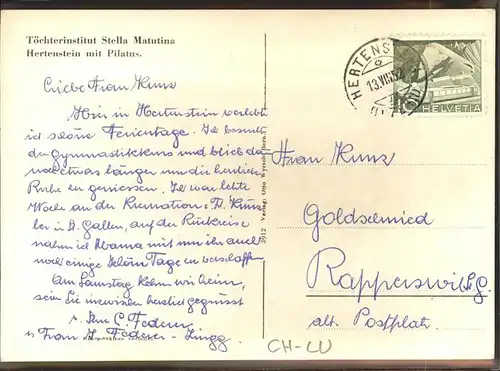 Töchterinstitut Stella Matutina
Hertenstein mit Pilatus.
Liebe Frau Kunz
Hier in Hertenstein verlebte
ich schöne Ferientage. Ich besuchte
den Gymnastikkurs und blieb da
noch etwas länger um die herrliche
Ruhe zu geniessen. Ich war letzte
Woche an der Kremation
in St. Gallen, auf der Rückreise
nahm ich Mama mit mir ihr auch
noch einige schöne Tage zu verschaffen
Am Samstag kehren wir heim,
seien Sie inzwischen herzlich gegrüsst
v. Ihrer C. Federer
u Frau Federer-Zingg
3912 Verlag: Otto Wyrsch, Bern
HERTENSTEIN
13.VIII.52
HELVETIA
Frau Kunz
Goldschmied
Rapperswil S.G.
alt. Postplatz.
CH-LU